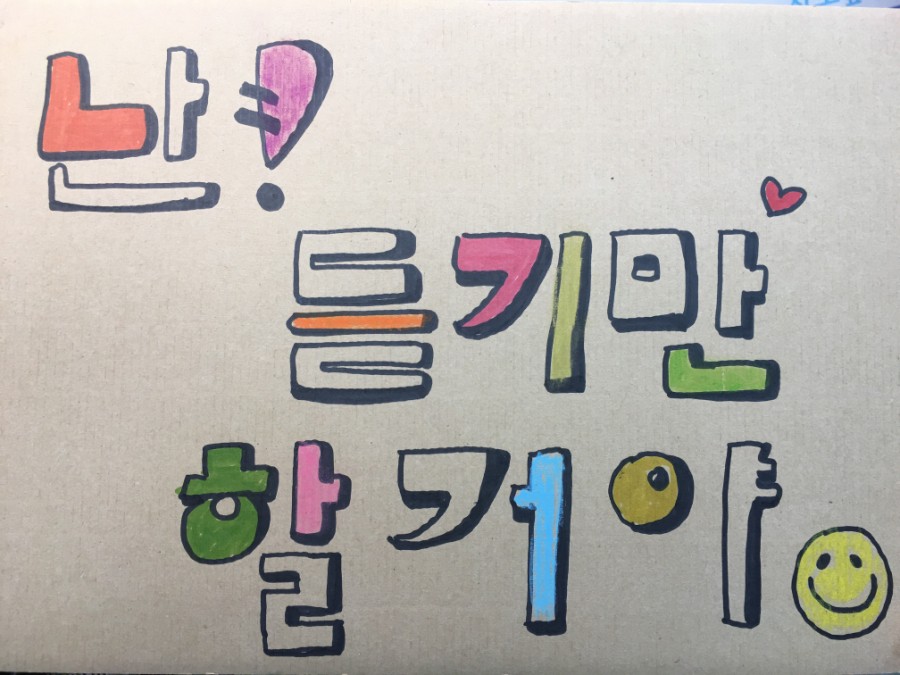 난!
듣기만
할거야